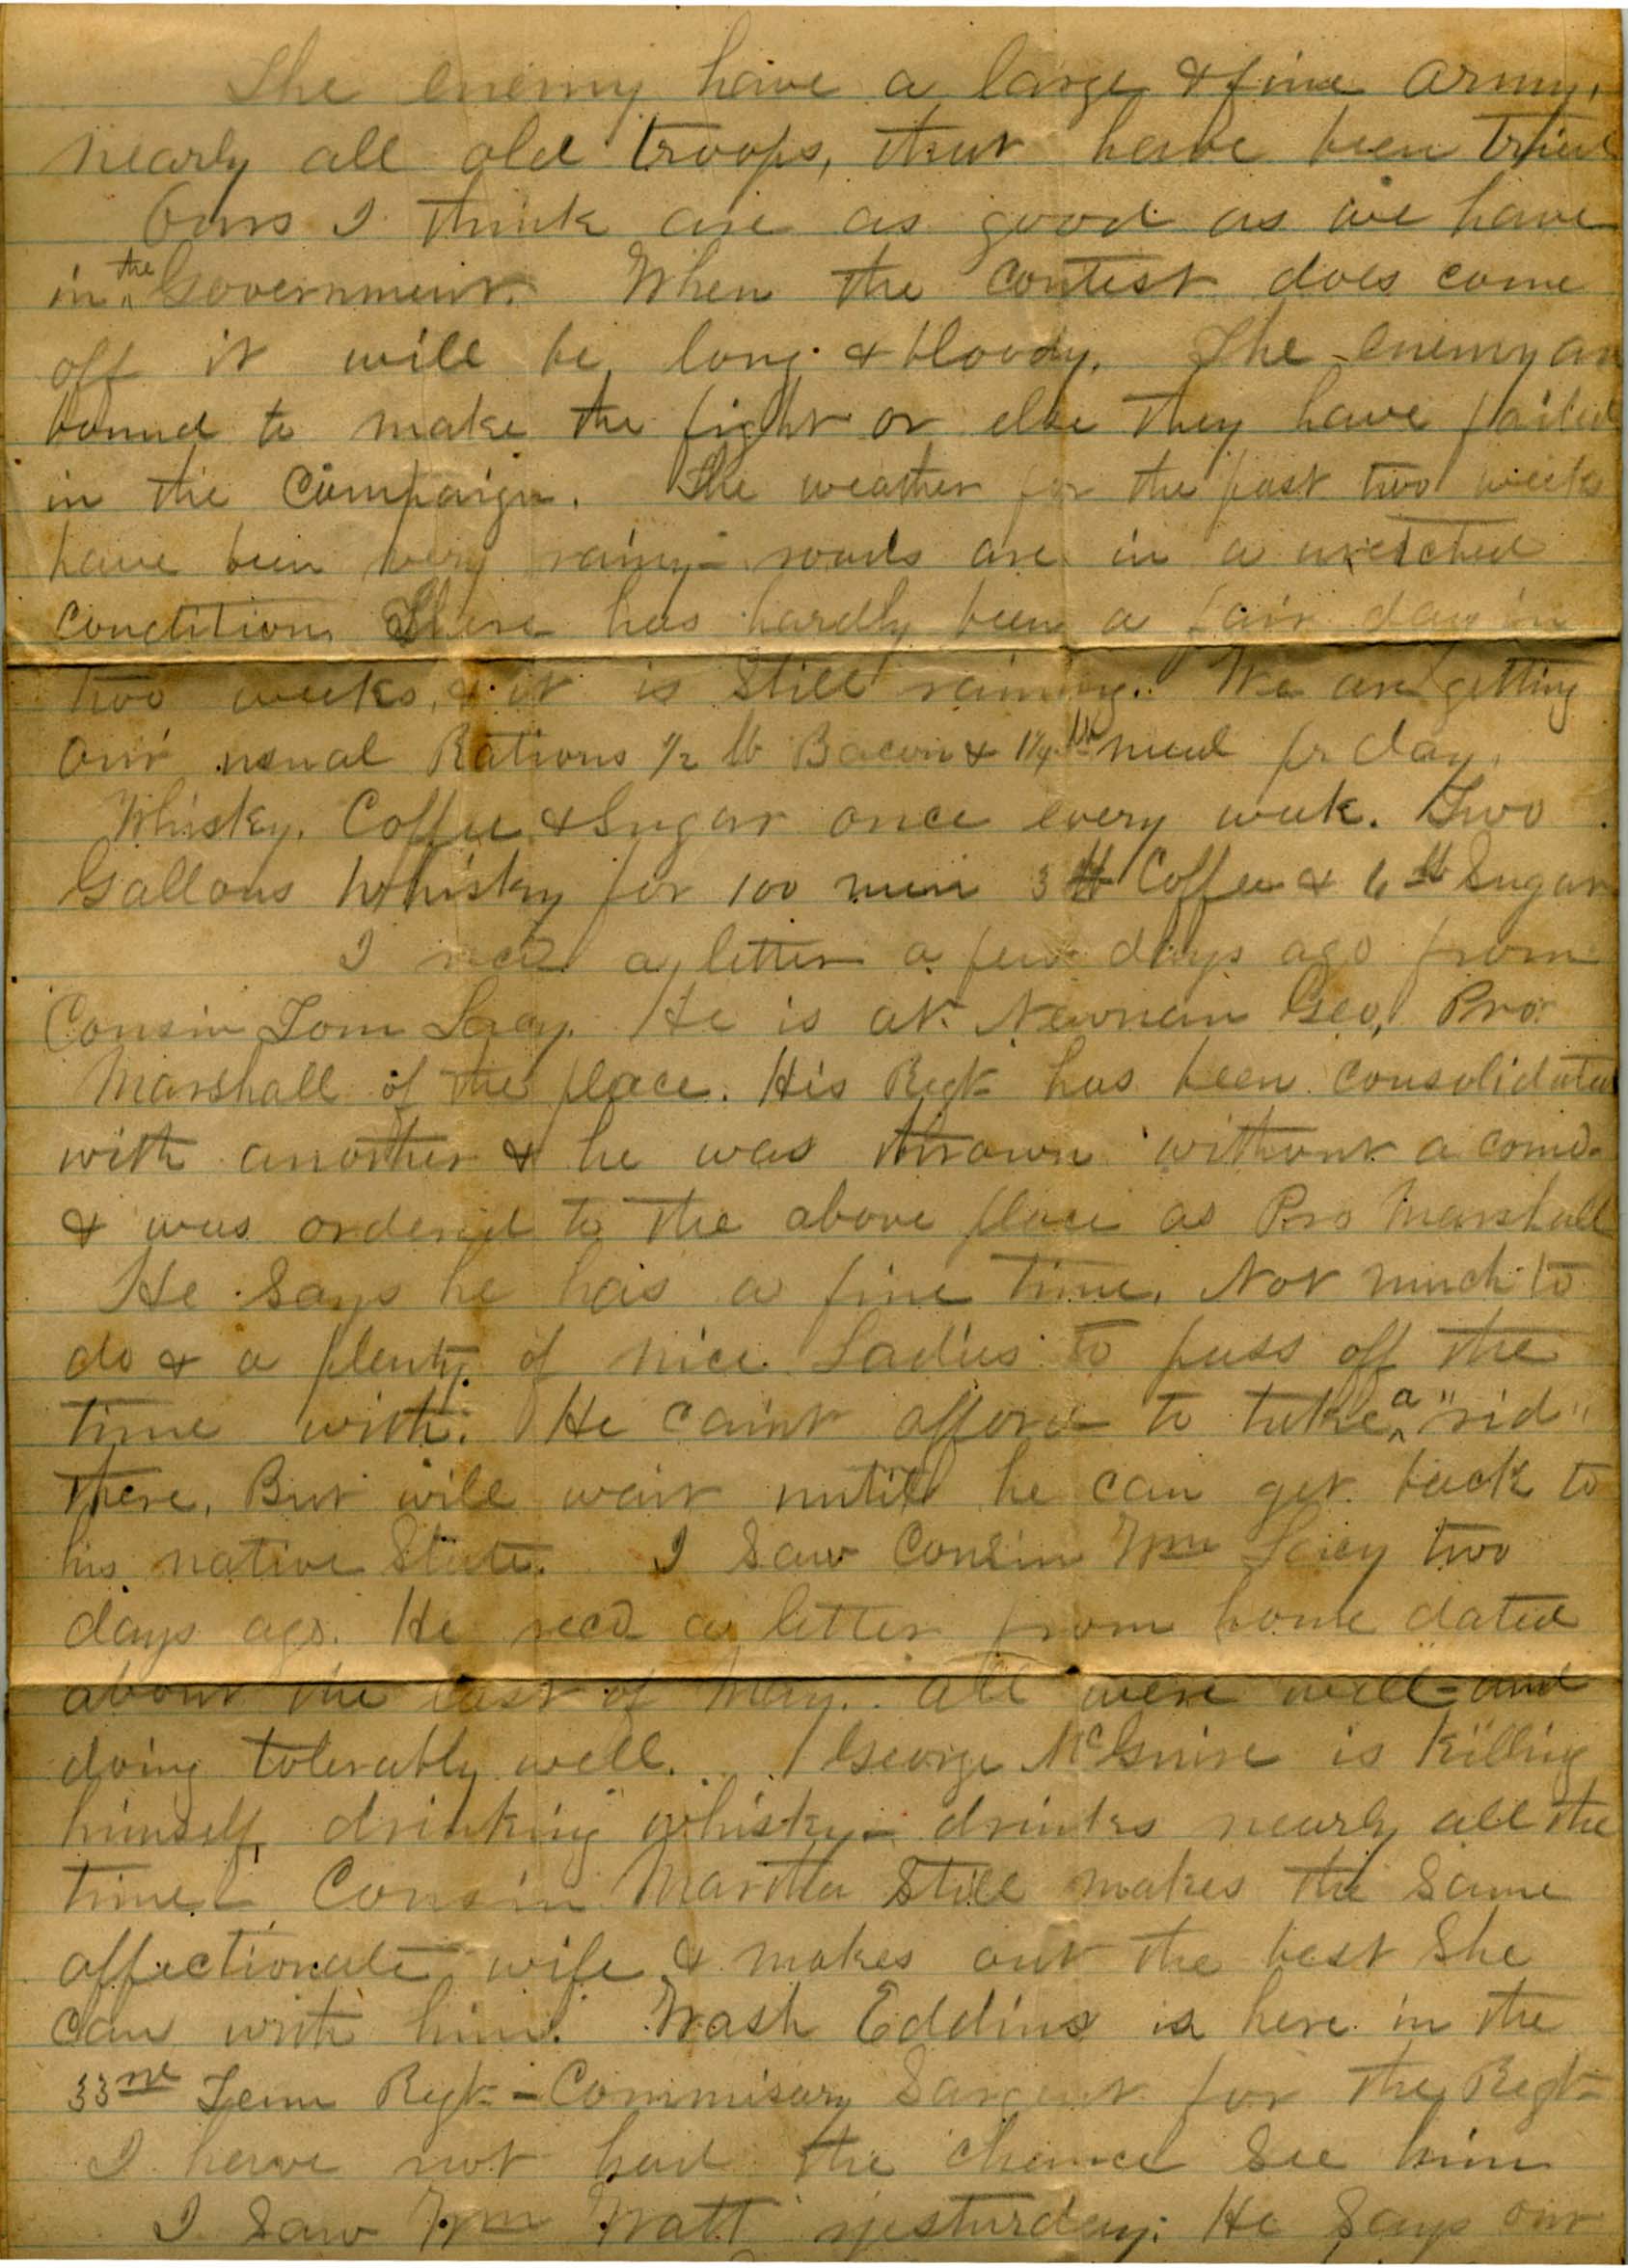 The enemy have a large & fine army,
nearly all old troops, that have been tried
Ours I think are as good as we have
in the Government. When the contest does come
off it will be long & bloody. The enemy are
bound to make the fight or else they have failed
in the Campaign. The weather for the past two weeks
have been very rainy - roads are in a wretched
condition There has hardly been a fair day in
two weeks, & it is still raining. We are getting
our usual Rations 1/2 lb Bacon & 1 1/4 lb meal pr day.
Whisky, Coffee & Sugar once every week. Two
Gallons Whisky for 100 men 3 lb Coffee & 6 lb Sugar
I recd a letter a few days ago from
Cousin Tom Lacy. He is at Newnan Geo, Pro
Marshall of the place. His Regt has been consolidated
with another & he was thrown without a comd.
& was ordered to the above place as Pro Marshall
He says he has a fine time, Not much to
do & a plenty of nice Ladies to pass off the
time with. He caint afford to take a "rid"
there, But will wait untill he can get back to
his native State. I saw Cousin Wm Lacy two
days ago. He recd a letter from home dated
about the last of May. all were well - and
doing tolerably well. George McGuire is killing
himself drinking whisky - drinks nearly all the
time - Cousin Martha still makes the same
affectionate wife & makes out the best she
can with him. Wash Eddins is here in the
33nd Tenn Regt - Commisary Sargent for the Regt -
I have not had the chance see him
I saw Wm Watt yesturday. He says our